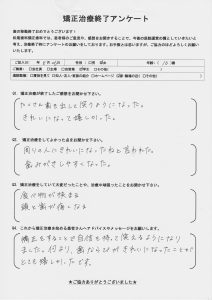 矯正治療終了アンケート
歯の移動終了おめでとうございます！
Q1. 矯正治療が終了したご感想をお聞かせ下さい。
たくさん歯を出して笑うようになった。
きれいになって嬉しかった。
Q2. 矯正治療をしてよかった点をお聞かせ下さい。
周りの人にきれいになったねと言われた。
歯みがきしやすくなった。
Q3. 矯正治療をしていて大変だったことや、治療中頑張ったことをお聞かせ下さい。
食べ物が挟まる
頭と歯が痛くなる
Q4. これから矯正治療を始める患者さんへアドバイスやメッセージをお願いします。
矯正をすることで自信を持って笑えるようになり
ました。何より歯ならびがきれいになったことが
とても嬉しかったです。
★ご協力ありがとうございました★